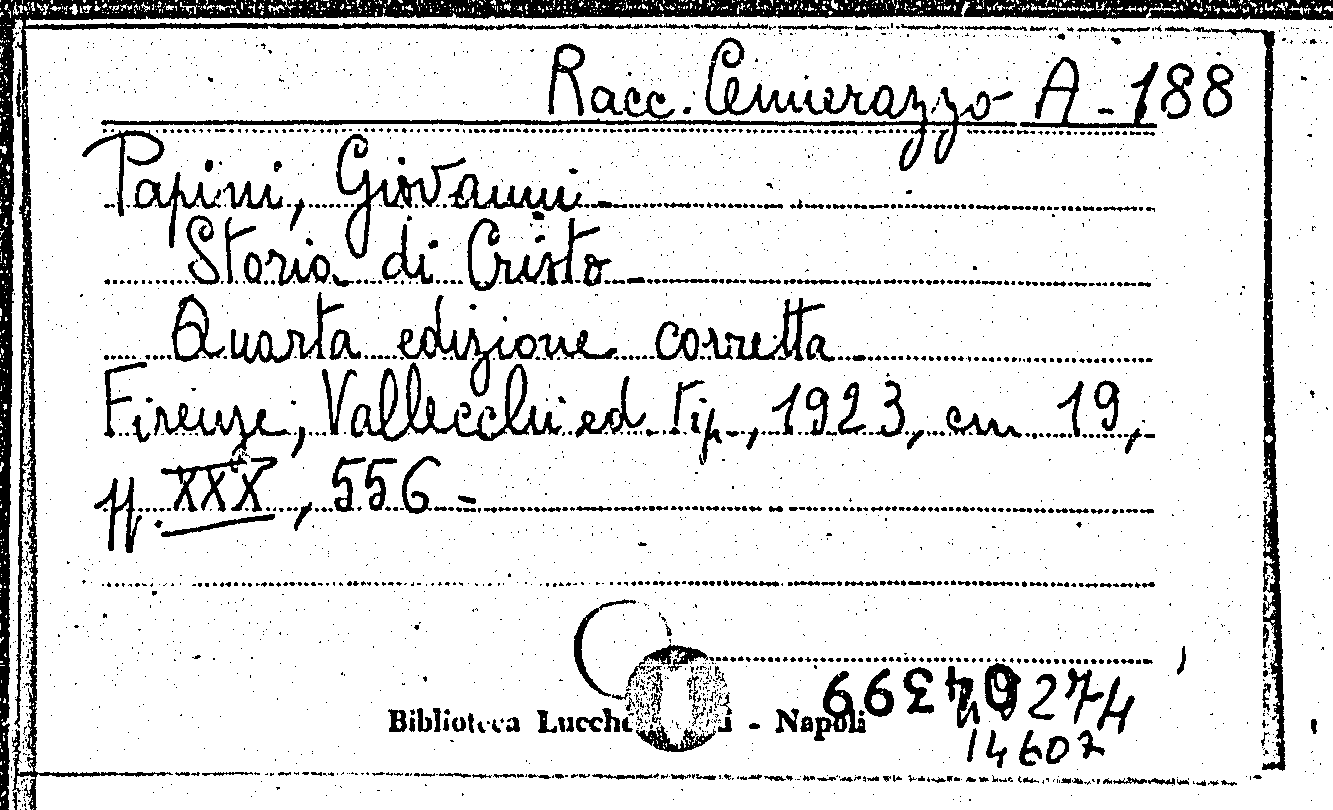 Racc. Cemerazzo A - 188
Papini, Giovanni -
Storia di Cristo -
Quarta edizione corretta -
Firenze, Vallecchi ed. tip., 1923, cm 19,
pp. XXX, 556 -
Biblioteca - Napoli
274
14607